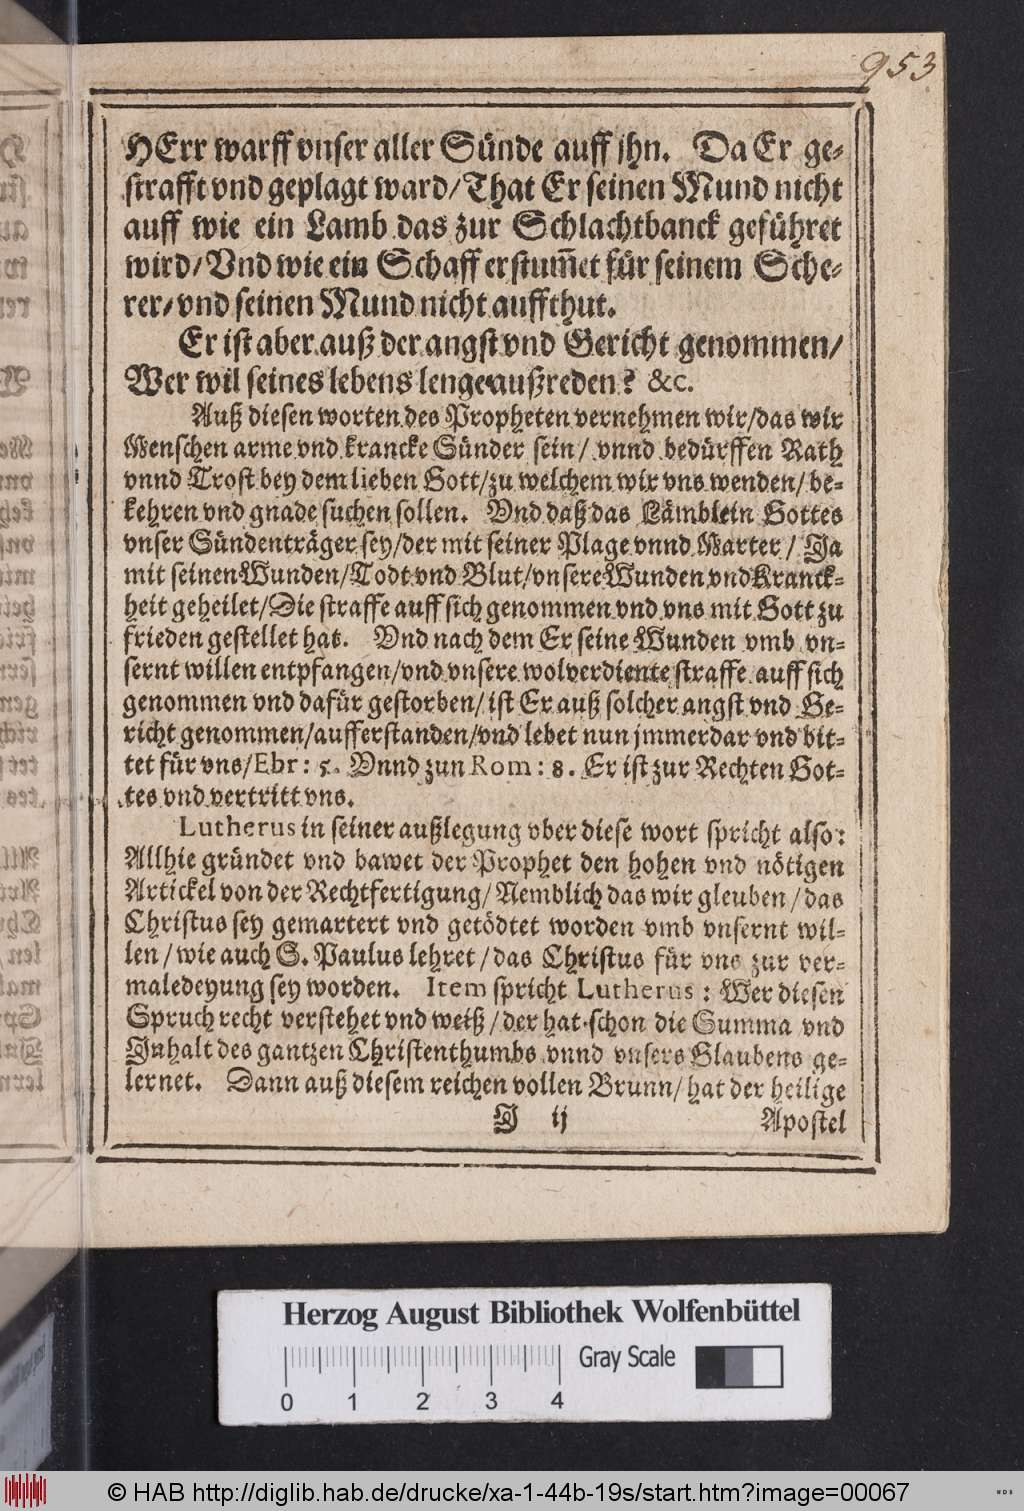 953
HErr warff vnser aller Sünde auff jhn. Da Er ge-
strafft vnd geplagt ward/ That Er seinen Mund nicht
auff wie ein Lamb das zur Schlachtbanck geführet
wird/ Vnd wie ein Schaff erstum̃et für seinem Sche-
rer/ vnd seinen Mund nicht auffthut.
Er ist aber auß der angst vnd Gericht genommen/
Wer wil seines lebens lenge außreden? &c.
Auß diesen worten des Propheten vernehmen wir/ das wir
Menschen arme vnd krancke Sünder sein/ vnnd bedürffen Rath
vnnd Trost bey dem lieben Gott/ zu welchem wir vns wenden/ be-
kehren vnd gnade suchen sollen. Vnd daß das Lämblein Gottes
vnser Sündenträger sey/ der mit seiner Plage vnnd Marter/ Ja
mit seinen Wunden/ Todt vnd Blut/ vnsere Wunden vnd Kranck-
heit geheilet/ Die straffe auff sich genommen vnd vns mit Gott zu
frieden gestellet hat. Vnd nach dem Er seine Wunden vmb vn-
sernt willen entpfangen/ vnd vnsere wolverdiente straffe auff sich
genommen vnd dafür gestorben/ ist Er auß solcher angst vnd Ge-
richt genommen/ aufferstanden/ vnd lebet nun jmmerdar vnd bit-
tet für vns/ Ebr: 5. Vnnd zun Rom: 8. Er ist zur Rechten Got-
tes vnd vertritt vns.
Lutherus in seiner außlegung vber diese wort spricht also:
Allhie gründet vnd bawet der Prophet den hohen vnd nötigen
Artickel von der Rechtfertigung/ Nemblich das wir gleuben/ das
Christus sey gemartert vnd getödtet worden vmb vnsernt wil-
len/ wie auch S. Paulus lehret/ das Christus für vns zur ver-
maledeyung sey worden. Item spricht Lutherus: Wer diesen
Spruch recht verstehet vnd weiß/ der hat schon die Summa vnd
Inhalt des gantzen Christenthumbs vnnd vnsers Glaubens ge-
lernet. Dann auß diesem reichen vollen Brunn/ hat der heilige
J ij Apostel
Herzog August Bibliothek Wolfenbüttel
Gray Scale
0 1 2 3 4
© HAB http://diglib.hab.de/drucke/xa-1-44b-19s/start.htm?image=00067